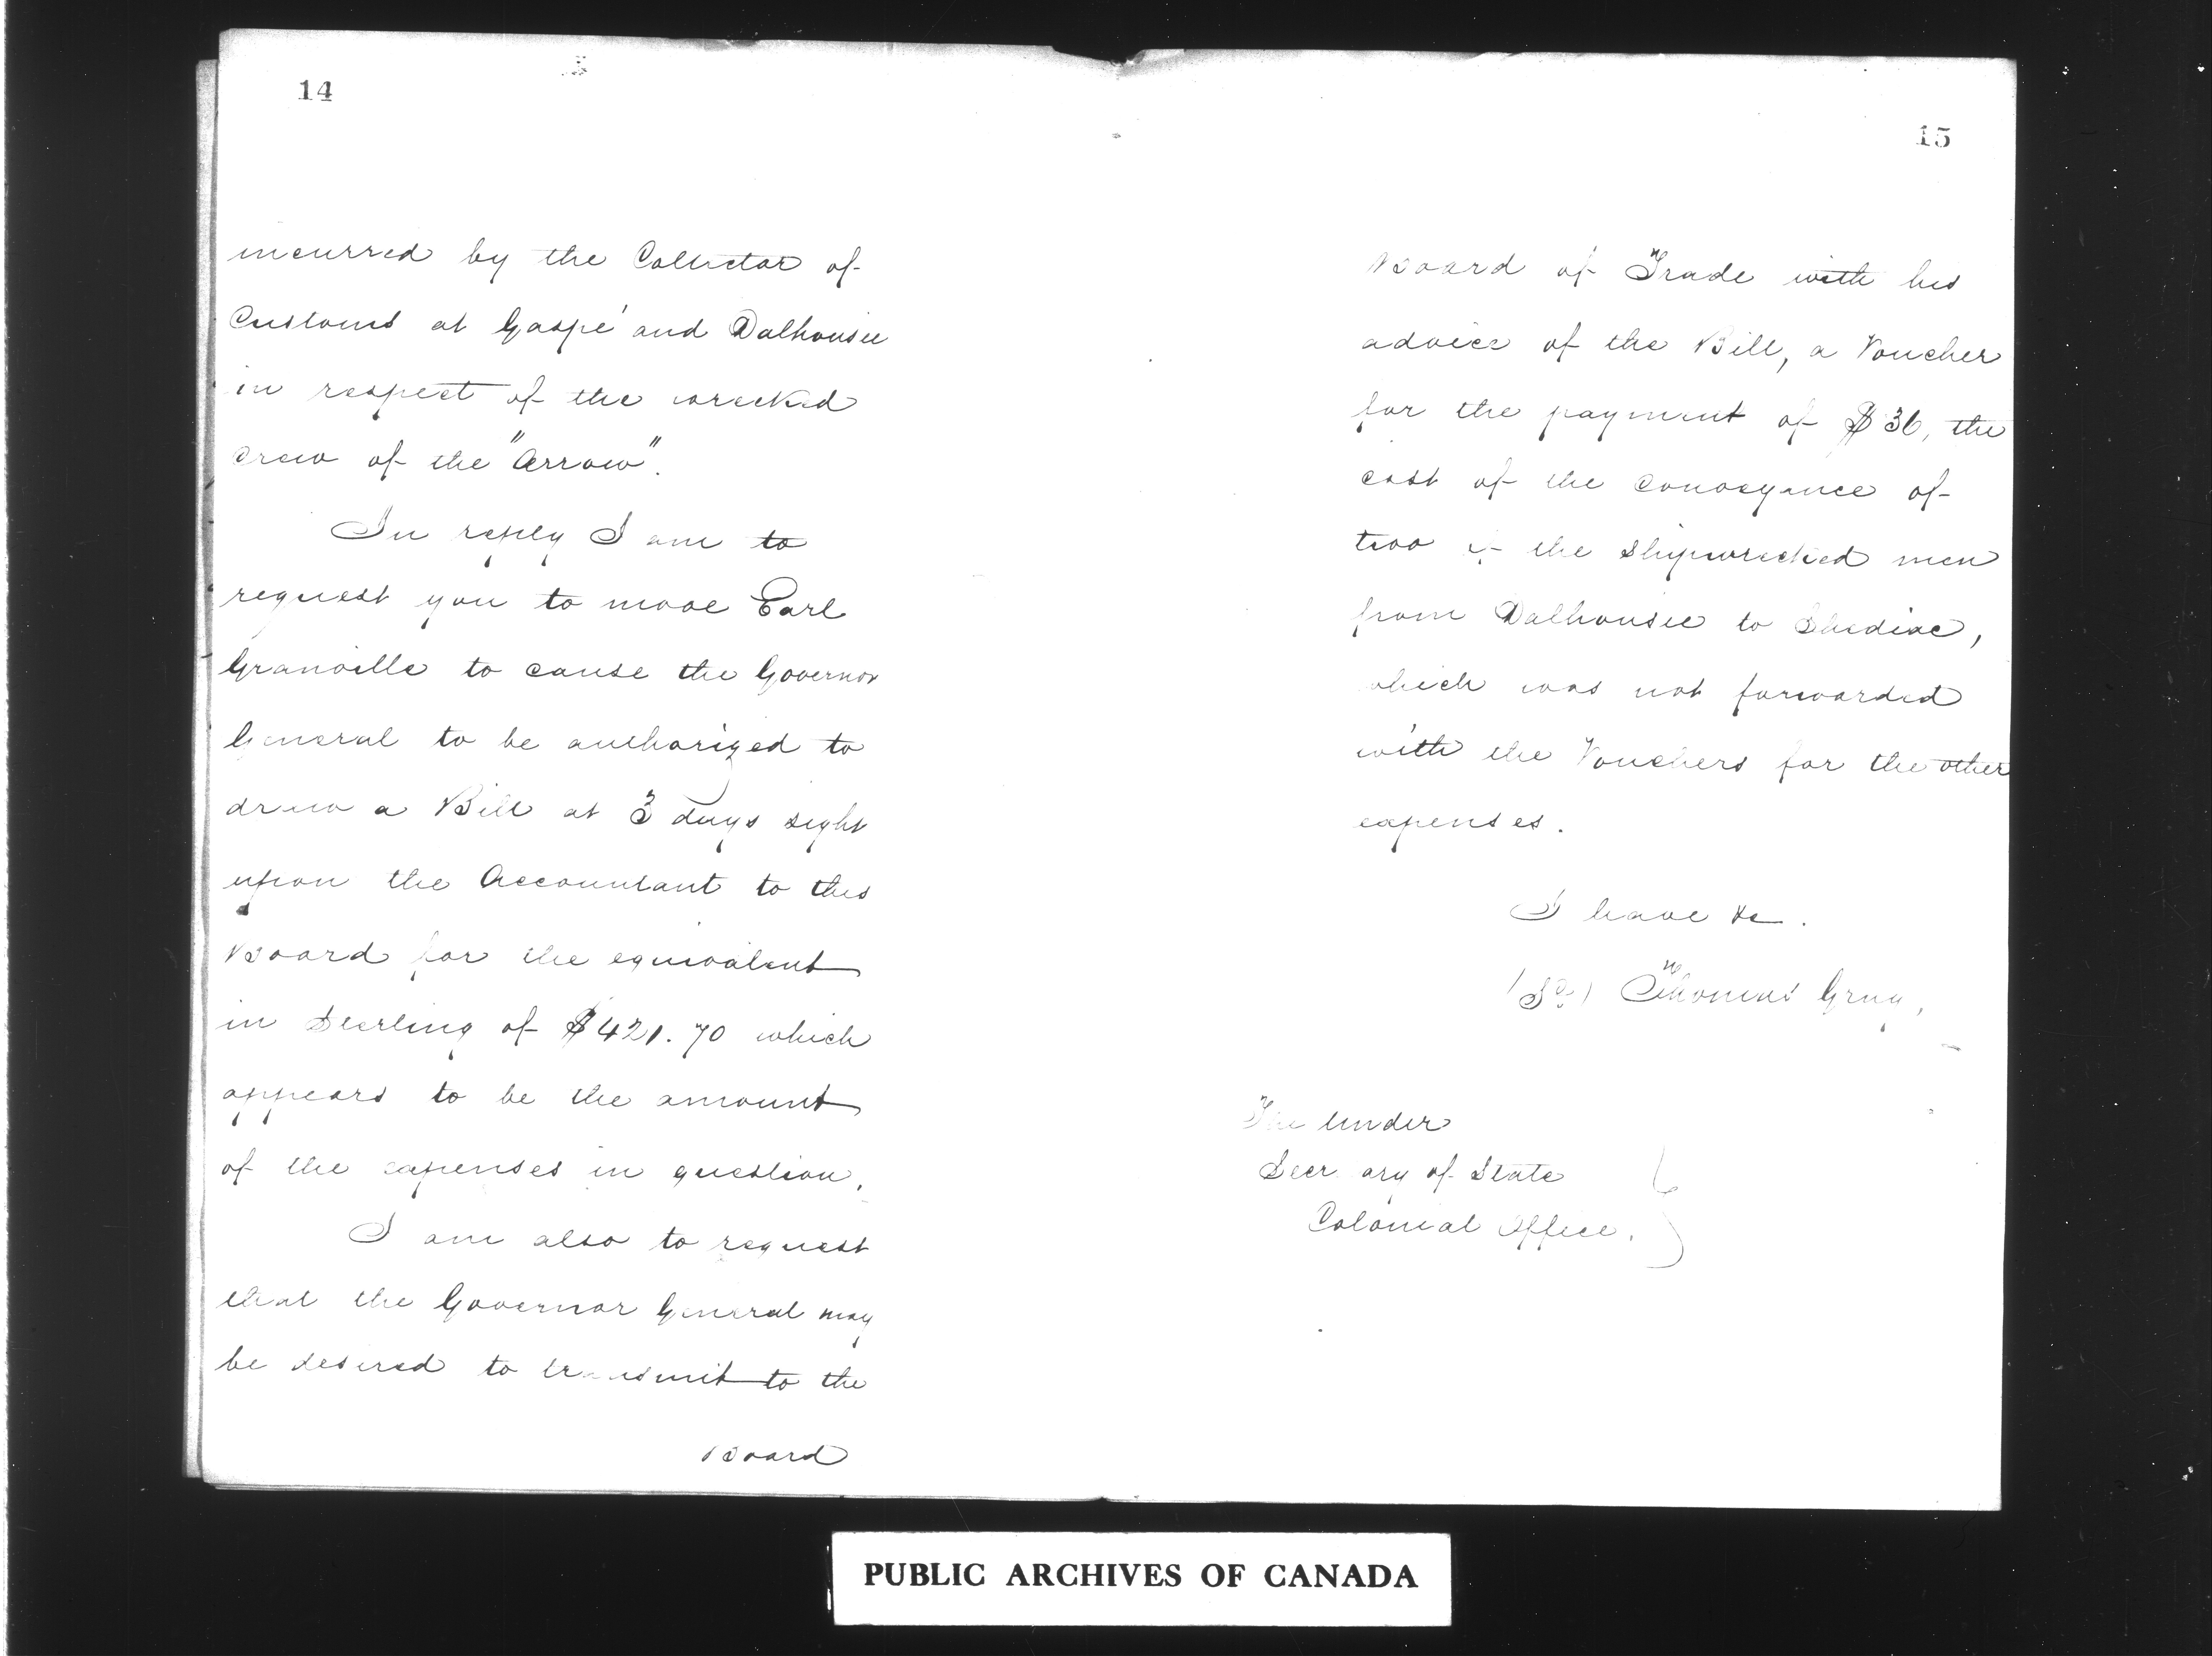 14
incurred by the Collector of
Customs at Gaspé and Dalhousie
in respect of the wrecked
crew of the "Arrow".
In reply I am to
request you to move Earl
Granville to cause the Governor
General to be authorized to
draw a Bill at 3 days sight
upon the Accountant to this
Board for the equivalent
in Sterling of $421.70 which
appears to be the amount
of the expenses in question.
I am also to request
that the Governor General may
be desired to transmit to the
Board
15
Board of Trade with his
advice of the Bill, a Voucher
for the payment of $36, the
cost of the conveyance of
two of the shipwrecked men
from Dalhousie to Shediac,
which was not forwarded
with the Vouchers for the other
expenses.
I have &c.
(Sd) Thomas Gray,
The Under
Secretary of State
Colonial Office.
PUBLIC ARCHIVES OF CANADA